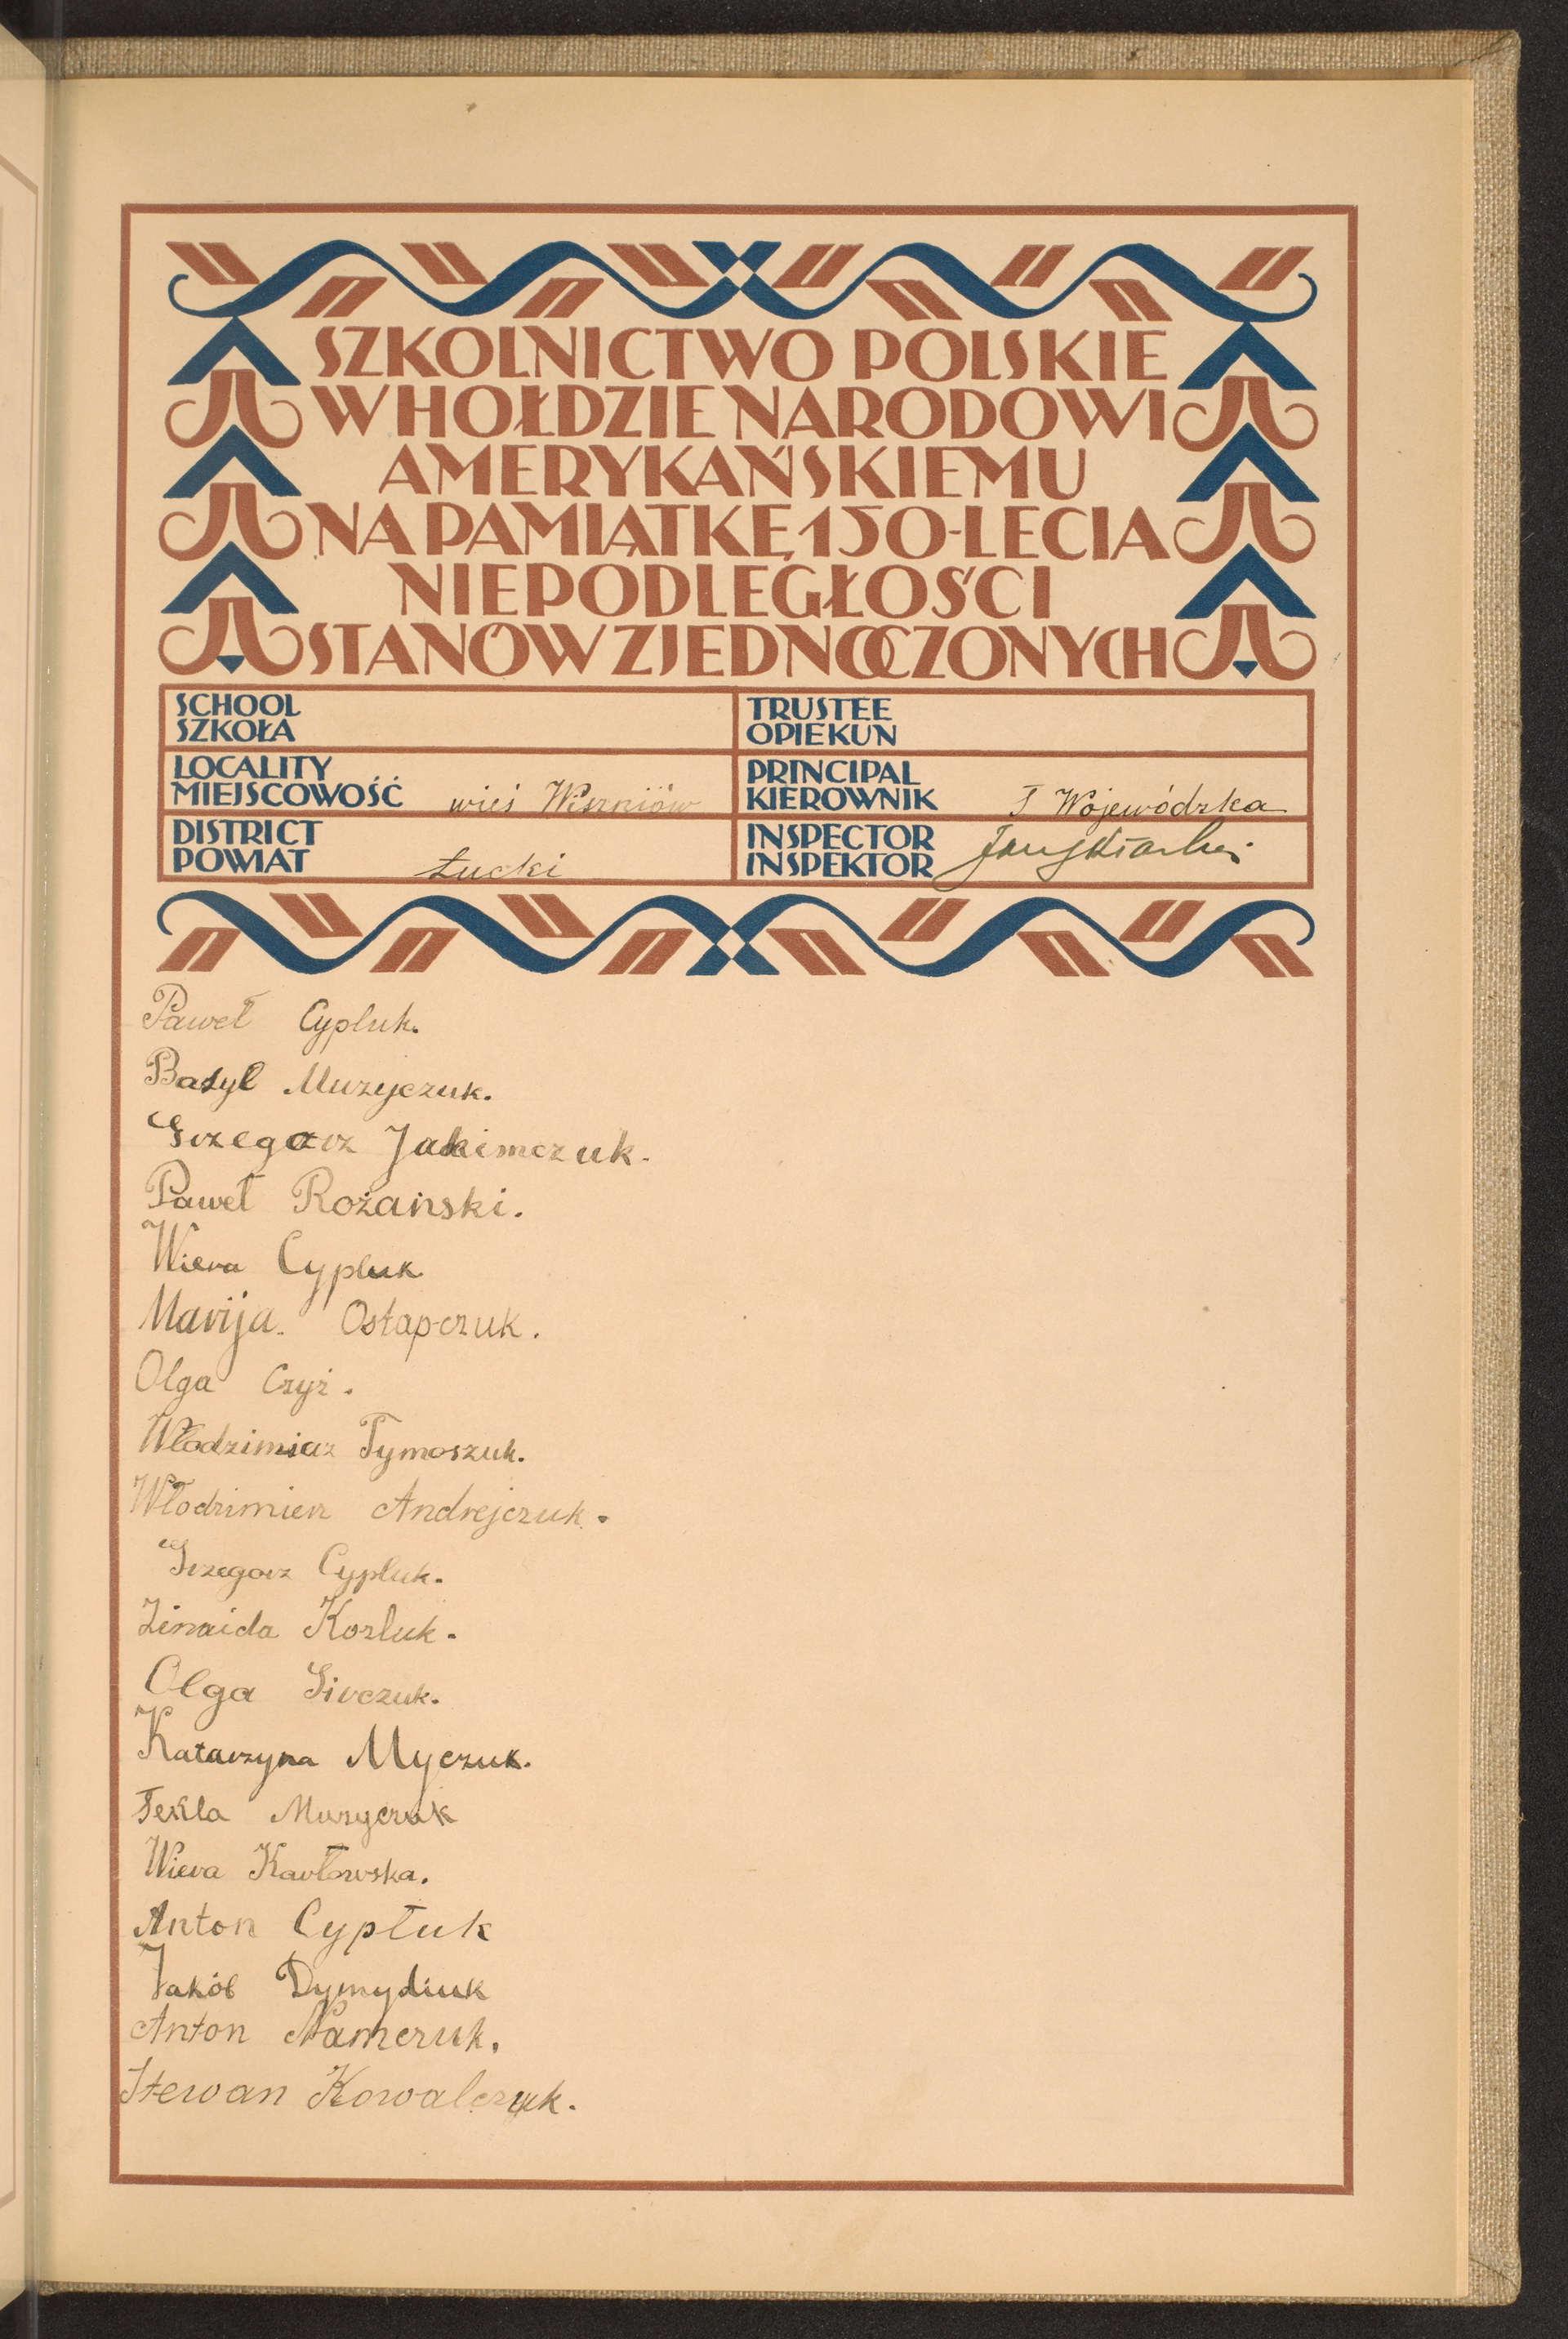 SZKOLNICTWO POLSKIE
W HOŁDZIE NARODOWI
AMERYKAŃSKIEMU
NA PAMIĄTKĘ 150-LECIA
NIEPODLEGŁOŚCI
STANÓW ZJEDNOCZONYCH
SCHOOL
SZKOŁA
TRUSTEE
OPIEKUN
LOCALITY
MIEJSCOWOŚĆ wieś Wiszniów
PRINCIPAL
KIEROWNIK J Wojewódzka
DISTRICT
POWIAT Łucki
INSPECTOR
INSPEKTOR
Paweł Cypluk.
Bazyl Muzyczuk.
Grzegorz Jakimczuk.
Paweł Rożański.
Wiera Cypluk
Marija. Ostapczuk.
Olga Czyż.
Włodzimierz Tymoszuk.
Włodzimierz Andrejczuk.
Grzegorz Cypluk.
Zinaida Kozluk.
Olga Girczuk.
Katarzyna Myczuk.
Tekla Muzyczuk
Wiera Karłowska.
Anton Cypłuk
Jakób Dymydiuk
Anton Namczuk.
Stewan Kowalczuk.